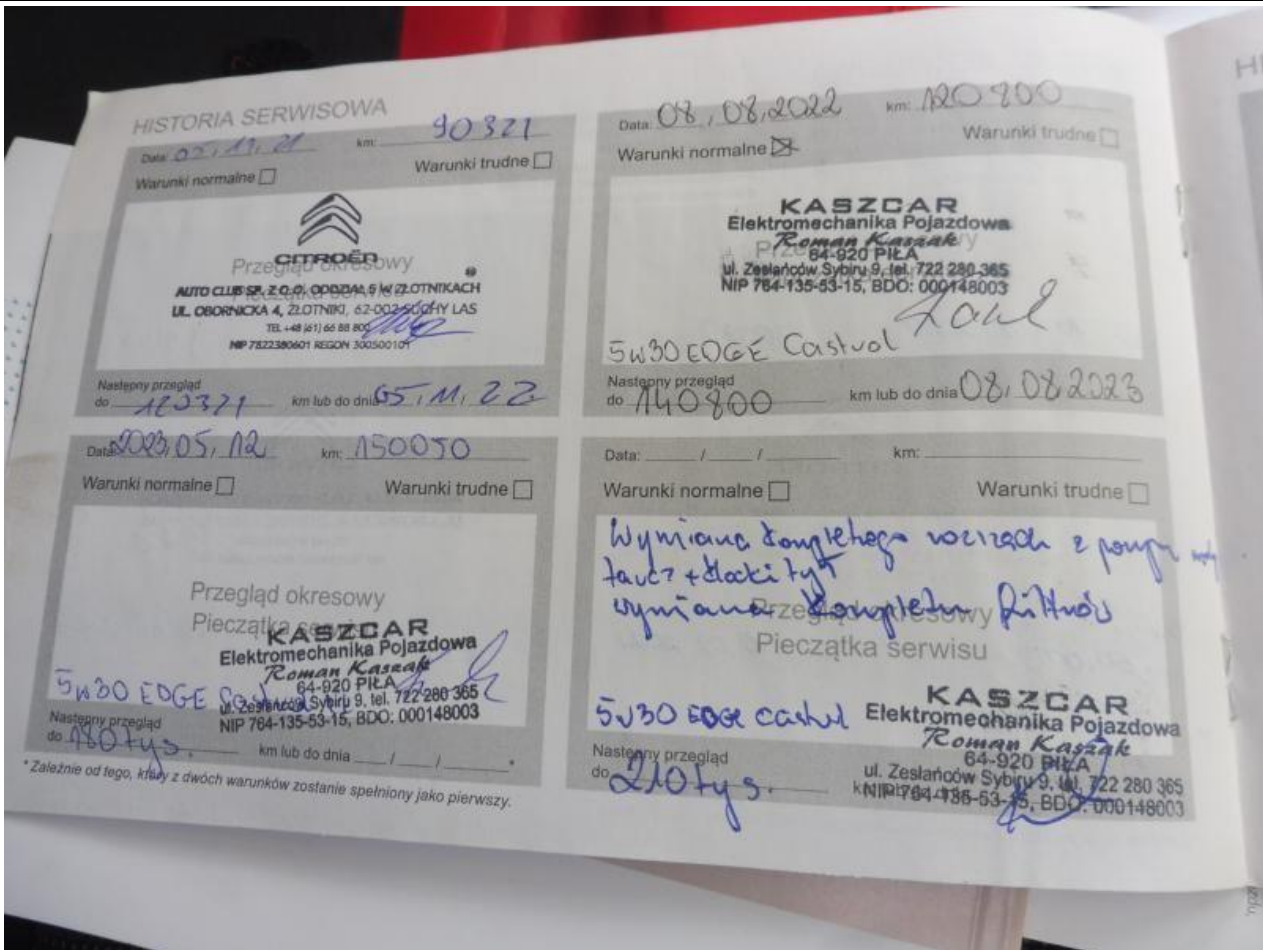 HISTORIA SERWISOWA
Data: 05, 11, 21 km: 90321
Warunki normalne Warunki trudne
CITROËN
Przegląd okresowy
AUTO CLUB SP. Z O.O. ODDZIAŁ 5 W ZŁOTNIKACH
UL. OBORNICKA 4, ZŁOTNIKI, 62-002 SUCHY LAS
TEL. +48 (61) 66 88 800
NIP 7822380601 REGON 300500101
Następny przegląd
do 120321 km lub do dnia 05, 11, 22
Data: 08, 08, 2022 km: 120800
Warunki normalne Warunki trudne
KASZCAR
Elektromechanika Pojazdowa
Roman Kaszak
64-920 PIŁA
ul. Zesłańców Sybiru 9, tel. 722 280 365
NIP 764-135-53-15, BDO: 000148003
5w30 EDGE Castrol
Następny przegląd
do 140800 km lub do dnia 08, 08 2023
Data: 2023, 05, 12 km: 150050
Warunki normalne Warunki trudne
Przegląd okresowy
Pieczątka
KASZCAR
Elektromechanika Pojazdowa
Roman Kaszak
64-920 PIŁA
5w30 EDGE
ul. Zesłańców Sybiru 9, tel. 722 280 365
NIP 764-135-53-15, BDO: 000148003
Następny przegląd
do 180 tys. km lub do dnia / / *
* Zależnie od tego, który z dwóch warunków zostanie spełniony jako pierwszy.
Data: / / km:
Warunki normalne Warunki trudne
Wymiana kompletnego rozrządu z pompą wody
tarcz + klocki tył
wymiana kompletu filtrów
Przegląd okresowy
Pieczątka serwisu
KASZCAR
5w30 EDGE Castrol Elektromechanika Pojazdowa
Roman Kaszak
64-920 PIŁA
ul. Zesłańców Sybiru 9, tel. 722 280 365
NIP 764-135-53-15, BDO: 000148003
Następny przegląd
do 210 tys.